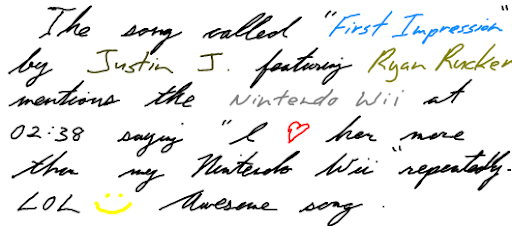 The song called "First Impression"
by Justin J. featuring Ryan Rucker
mentions the Nintendo Wii at
02:38 saying "I ♡ her more
than my Nintendo Wii" repeatedly.
LOL Awesome song.